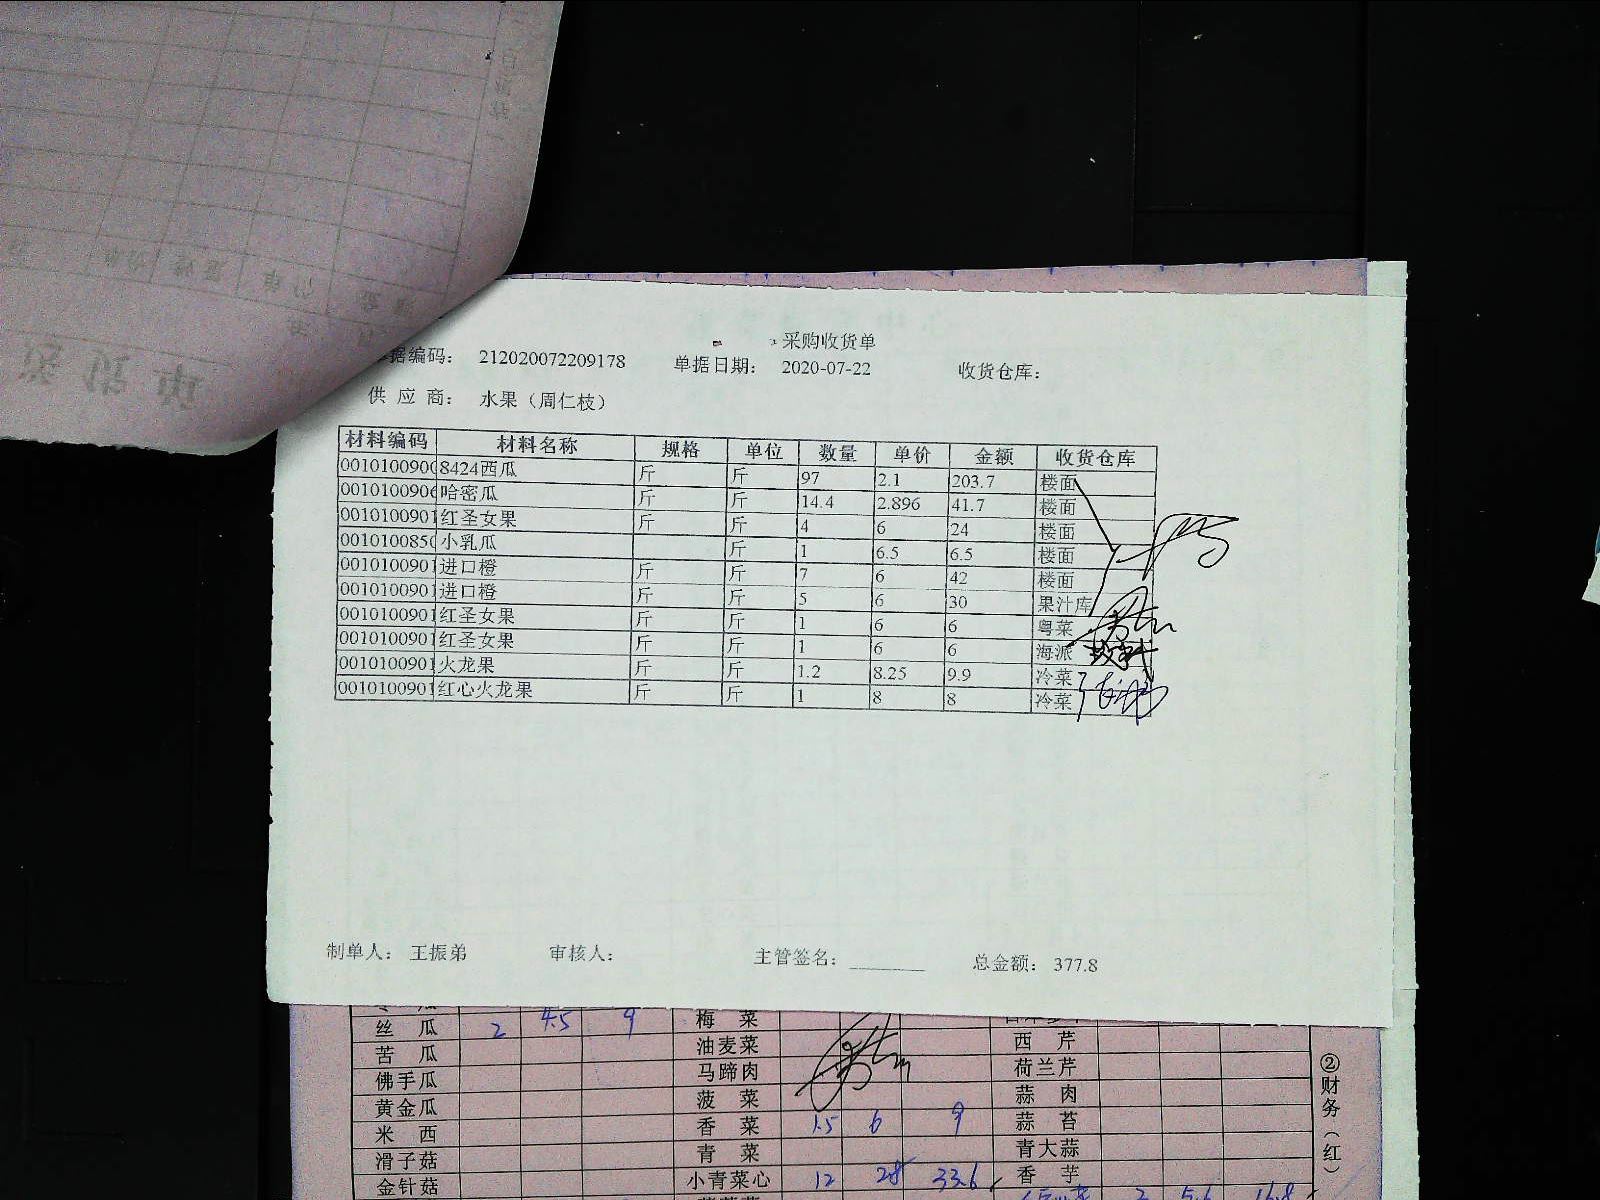 采购收货单
据编码： 212020072209178 单据日期： 2020-07-22 收货仓库：
供 应 商： 水果（周仁枝）
材料编码 材料名称 规格 单位 数量 单价 金额 收货仓库
0010100900 8424西瓜 斤 斤 97 2.1 203.7 楼面
0010100906 哈密瓜 斤 斤 14.4 2.896 41.7 楼面
0010100901 红圣女果 斤 斤 4 6 24 楼面
0010100850 小乳瓜 斤 1 6.5 6.5 楼面
0010100901 进口橙 斤 斤 7 6 42 楼面
0010100901 进口橙 斤 斤 5 6 30 果汁库
0010100901 红圣女果 斤 斤 1 6 6 粤菜
0010100901 红圣女果 斤 斤 1 6 6 海派
0010100901 火龙果 斤 斤 1.2 8.25 9.9 冷菜
0010100901 红心火龙果 斤 斤 1 8 8 冷菜
制单人： 王振弟 审核人： 主管签名： 总金额： 377.8
丝 瓜 2 4.5 9 梅 菜
苦 瓜 油麦菜 西 芹
佛手瓜 马蹄肉 荷兰芹
黄金瓜 菠 菜 蒜 肉
米 西 香 菜 1.5 6 9 蒜 苔
滑子菇 青 菜 青大蒜
金针菇 小青菜心 12 28 33.6 香 芋
2 5.6 16.8
②财务（红）